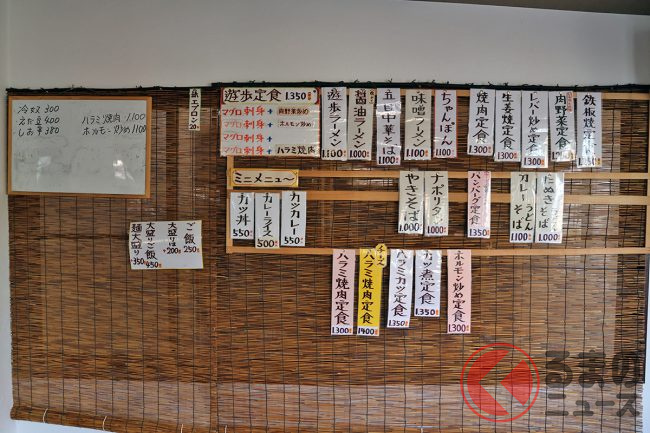 冷奴 300
えだ豆 400
しお辛 380
ハラミ焼肉 1,100
ホルモン炒め 1100
紙エプロン 20
遊歩定食 1,350
マグロ刺身 + 肉野菜炒め
マグロ刺身 + ホルモン炒め
マグロ刺身 +
マグロ刺身 + ハラミ焼肉
遊歩ラーメン 1,100
醤油ラーメン 1000
五目中華そば 1,100
味噌ラーメン 1,100
ちゃんぽん 1100
焼肉定食 1,300
生姜焼定食 1,300
レバー炒め定食 1,300
肉野菜定食
鉄板焼定食
ミニメニュー
カツ丼 550
カレーライス 500
カツカレー 550
やきそば 1.000
ナポリタン 1000
ハンバーグ定食 1.350
カレーうどん
そば 1100
たぬきそば 1.000
ご飯 250
大盛りは +200
大盛りご飯 450
麺大盛り +350
ハラミ焼肉定食 1300
チーズ
ハラミ焼肉定食 1400
ハラミカツ定食 1,350
カツ煮定食 1.350
ホルモン炒め定食 1300
くるまのニュース